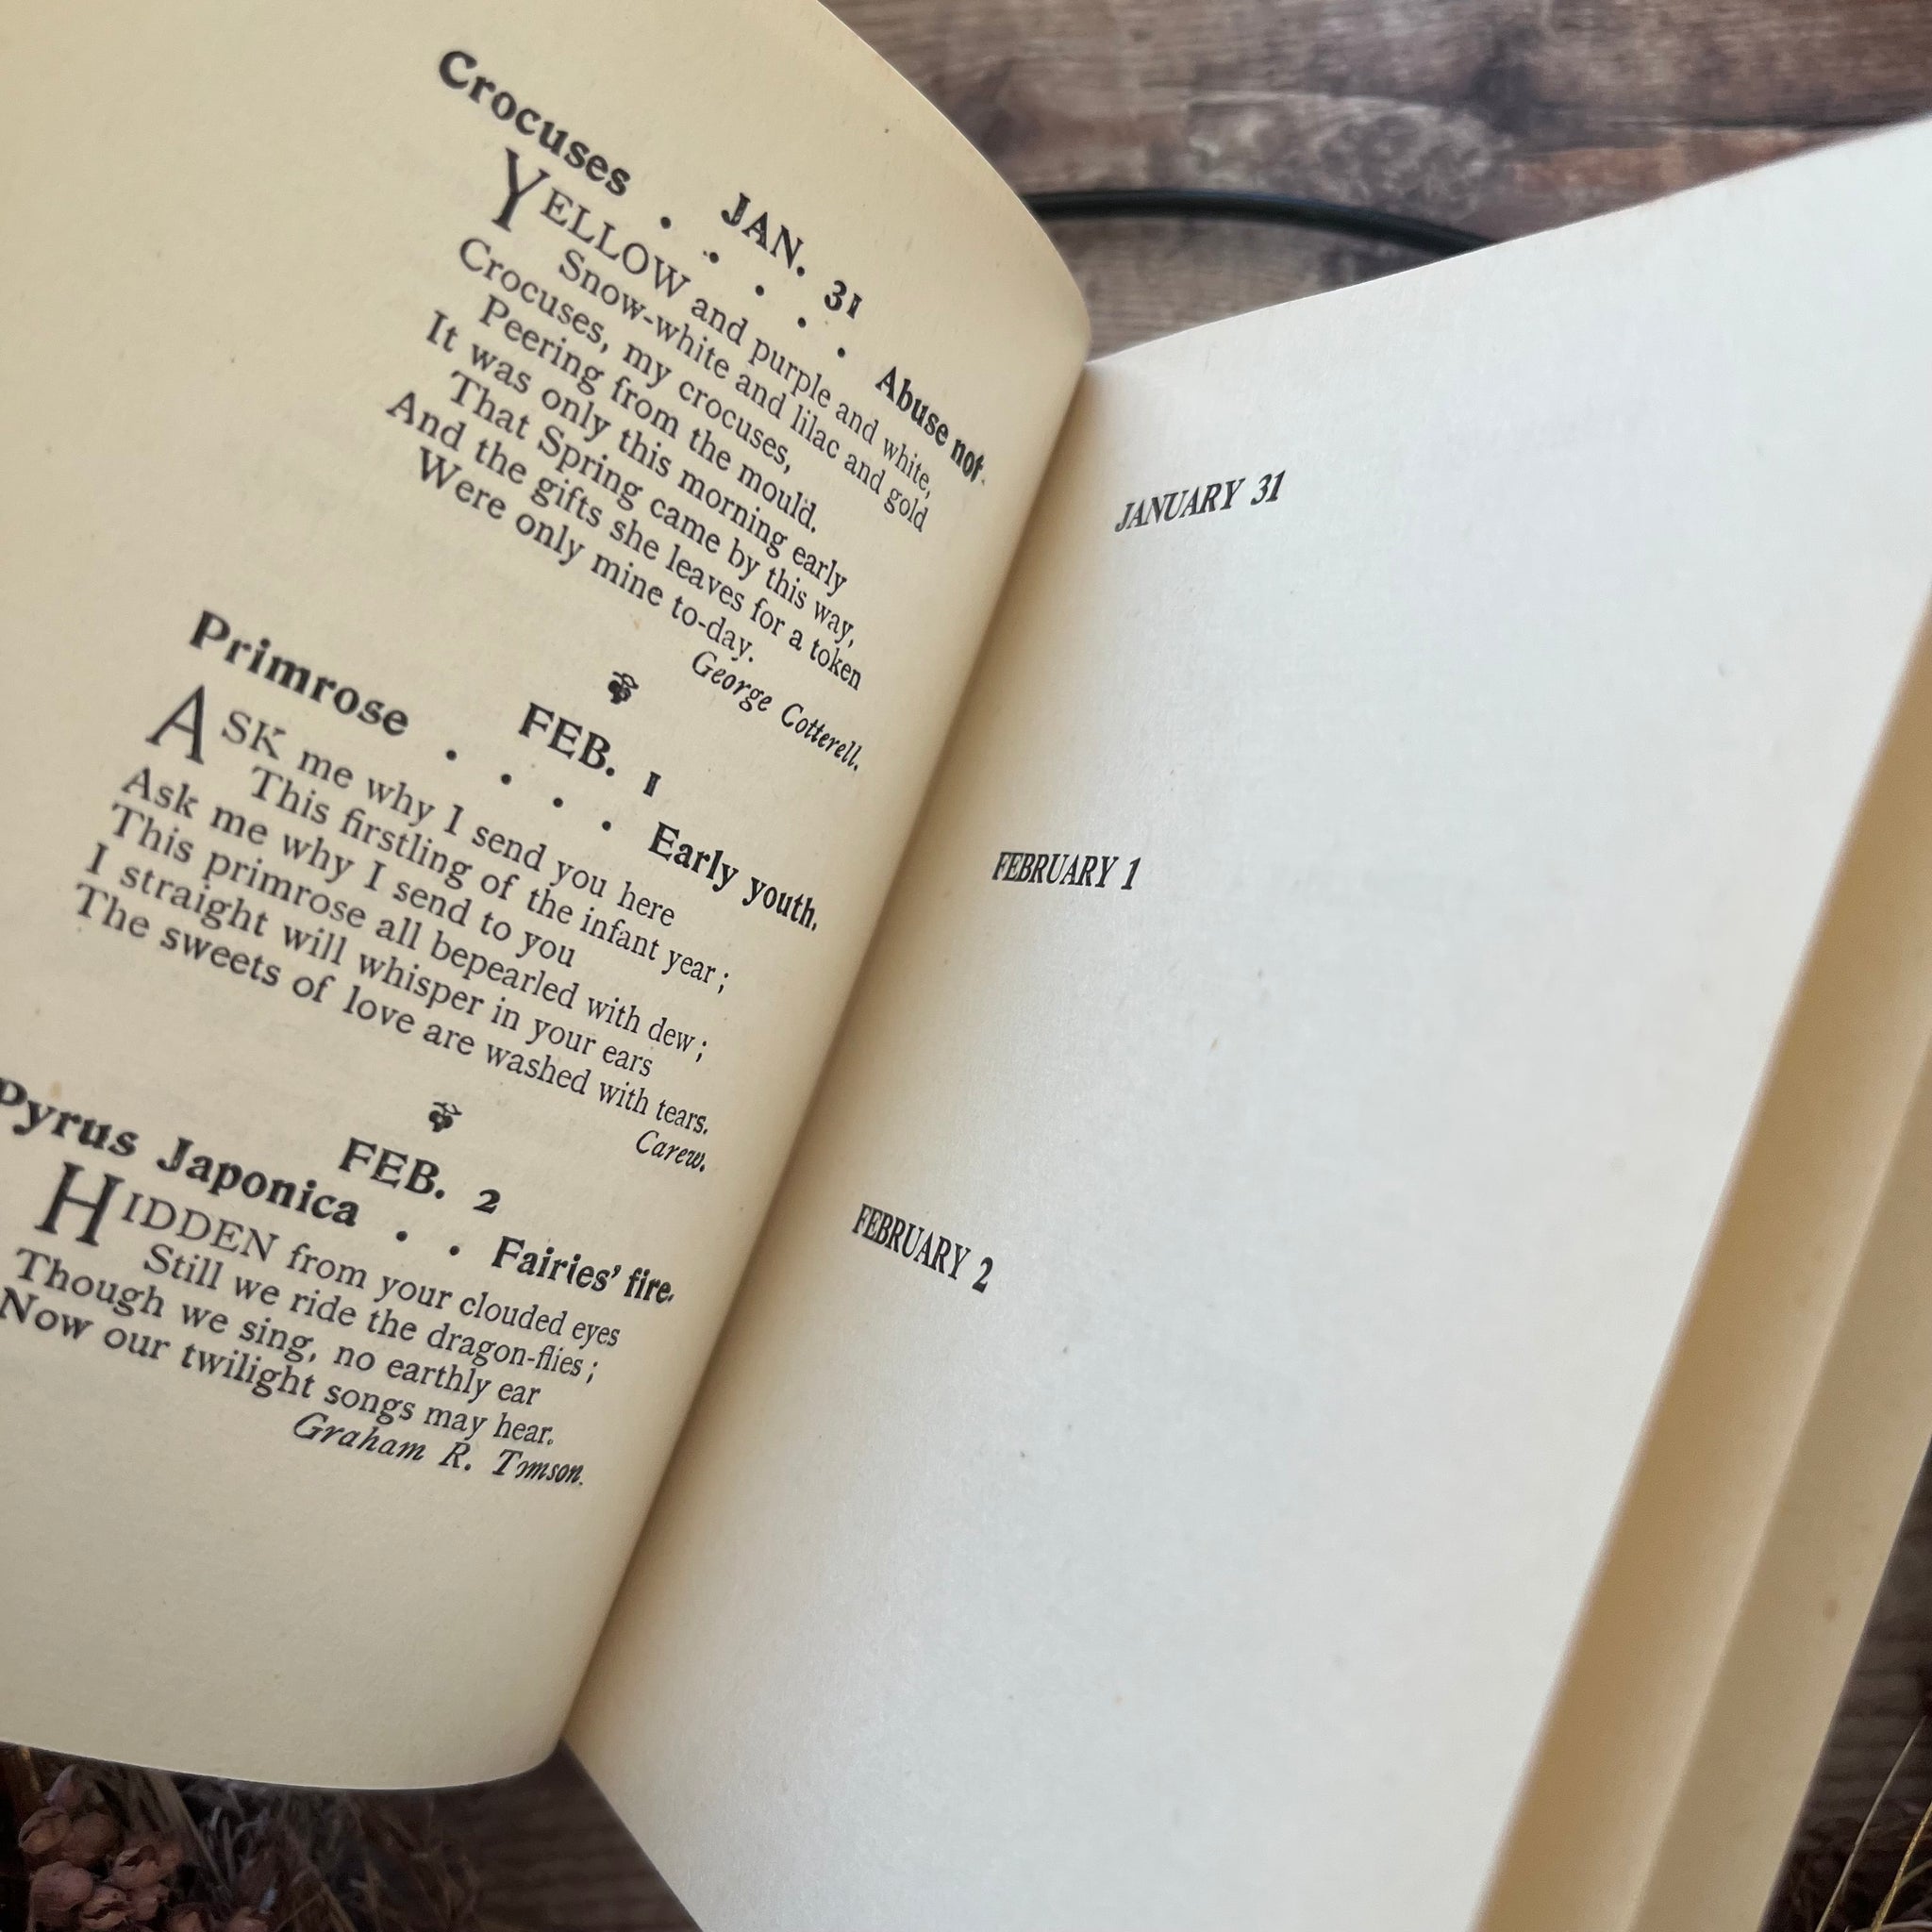 JAN. 31
Crocuses . . . . . Abuse not.
YELLOW and purple and white,
Snow-white and lilac and gold
Crocuses, my crocuses,
Peering from the mould.
It was only this morning early
That Spring came by this way,
And the gifts she leaves for a token
Were only mine to-day.
George Cotterell.
FEB. 1
Primrose . . . . Early youth.
ASK me why I send you here
This firstling of the infant year;
Ask me why I send to you
This primrose all bepearled with dew;
I straight will whisper in your ears
The sweets of love are washed with tears.
Carew.
FEB. 2
Pyrus Japonica . . Fairies' fire.
HIDDEN from your clouded eyes
Still we ride the dragon-flies;
Though we sing, no earthly ear
Now our twilight songs may hear.
Graham R. Tomson.
JANUARY 31
FEBRUARY 1
FEBRUARY 2